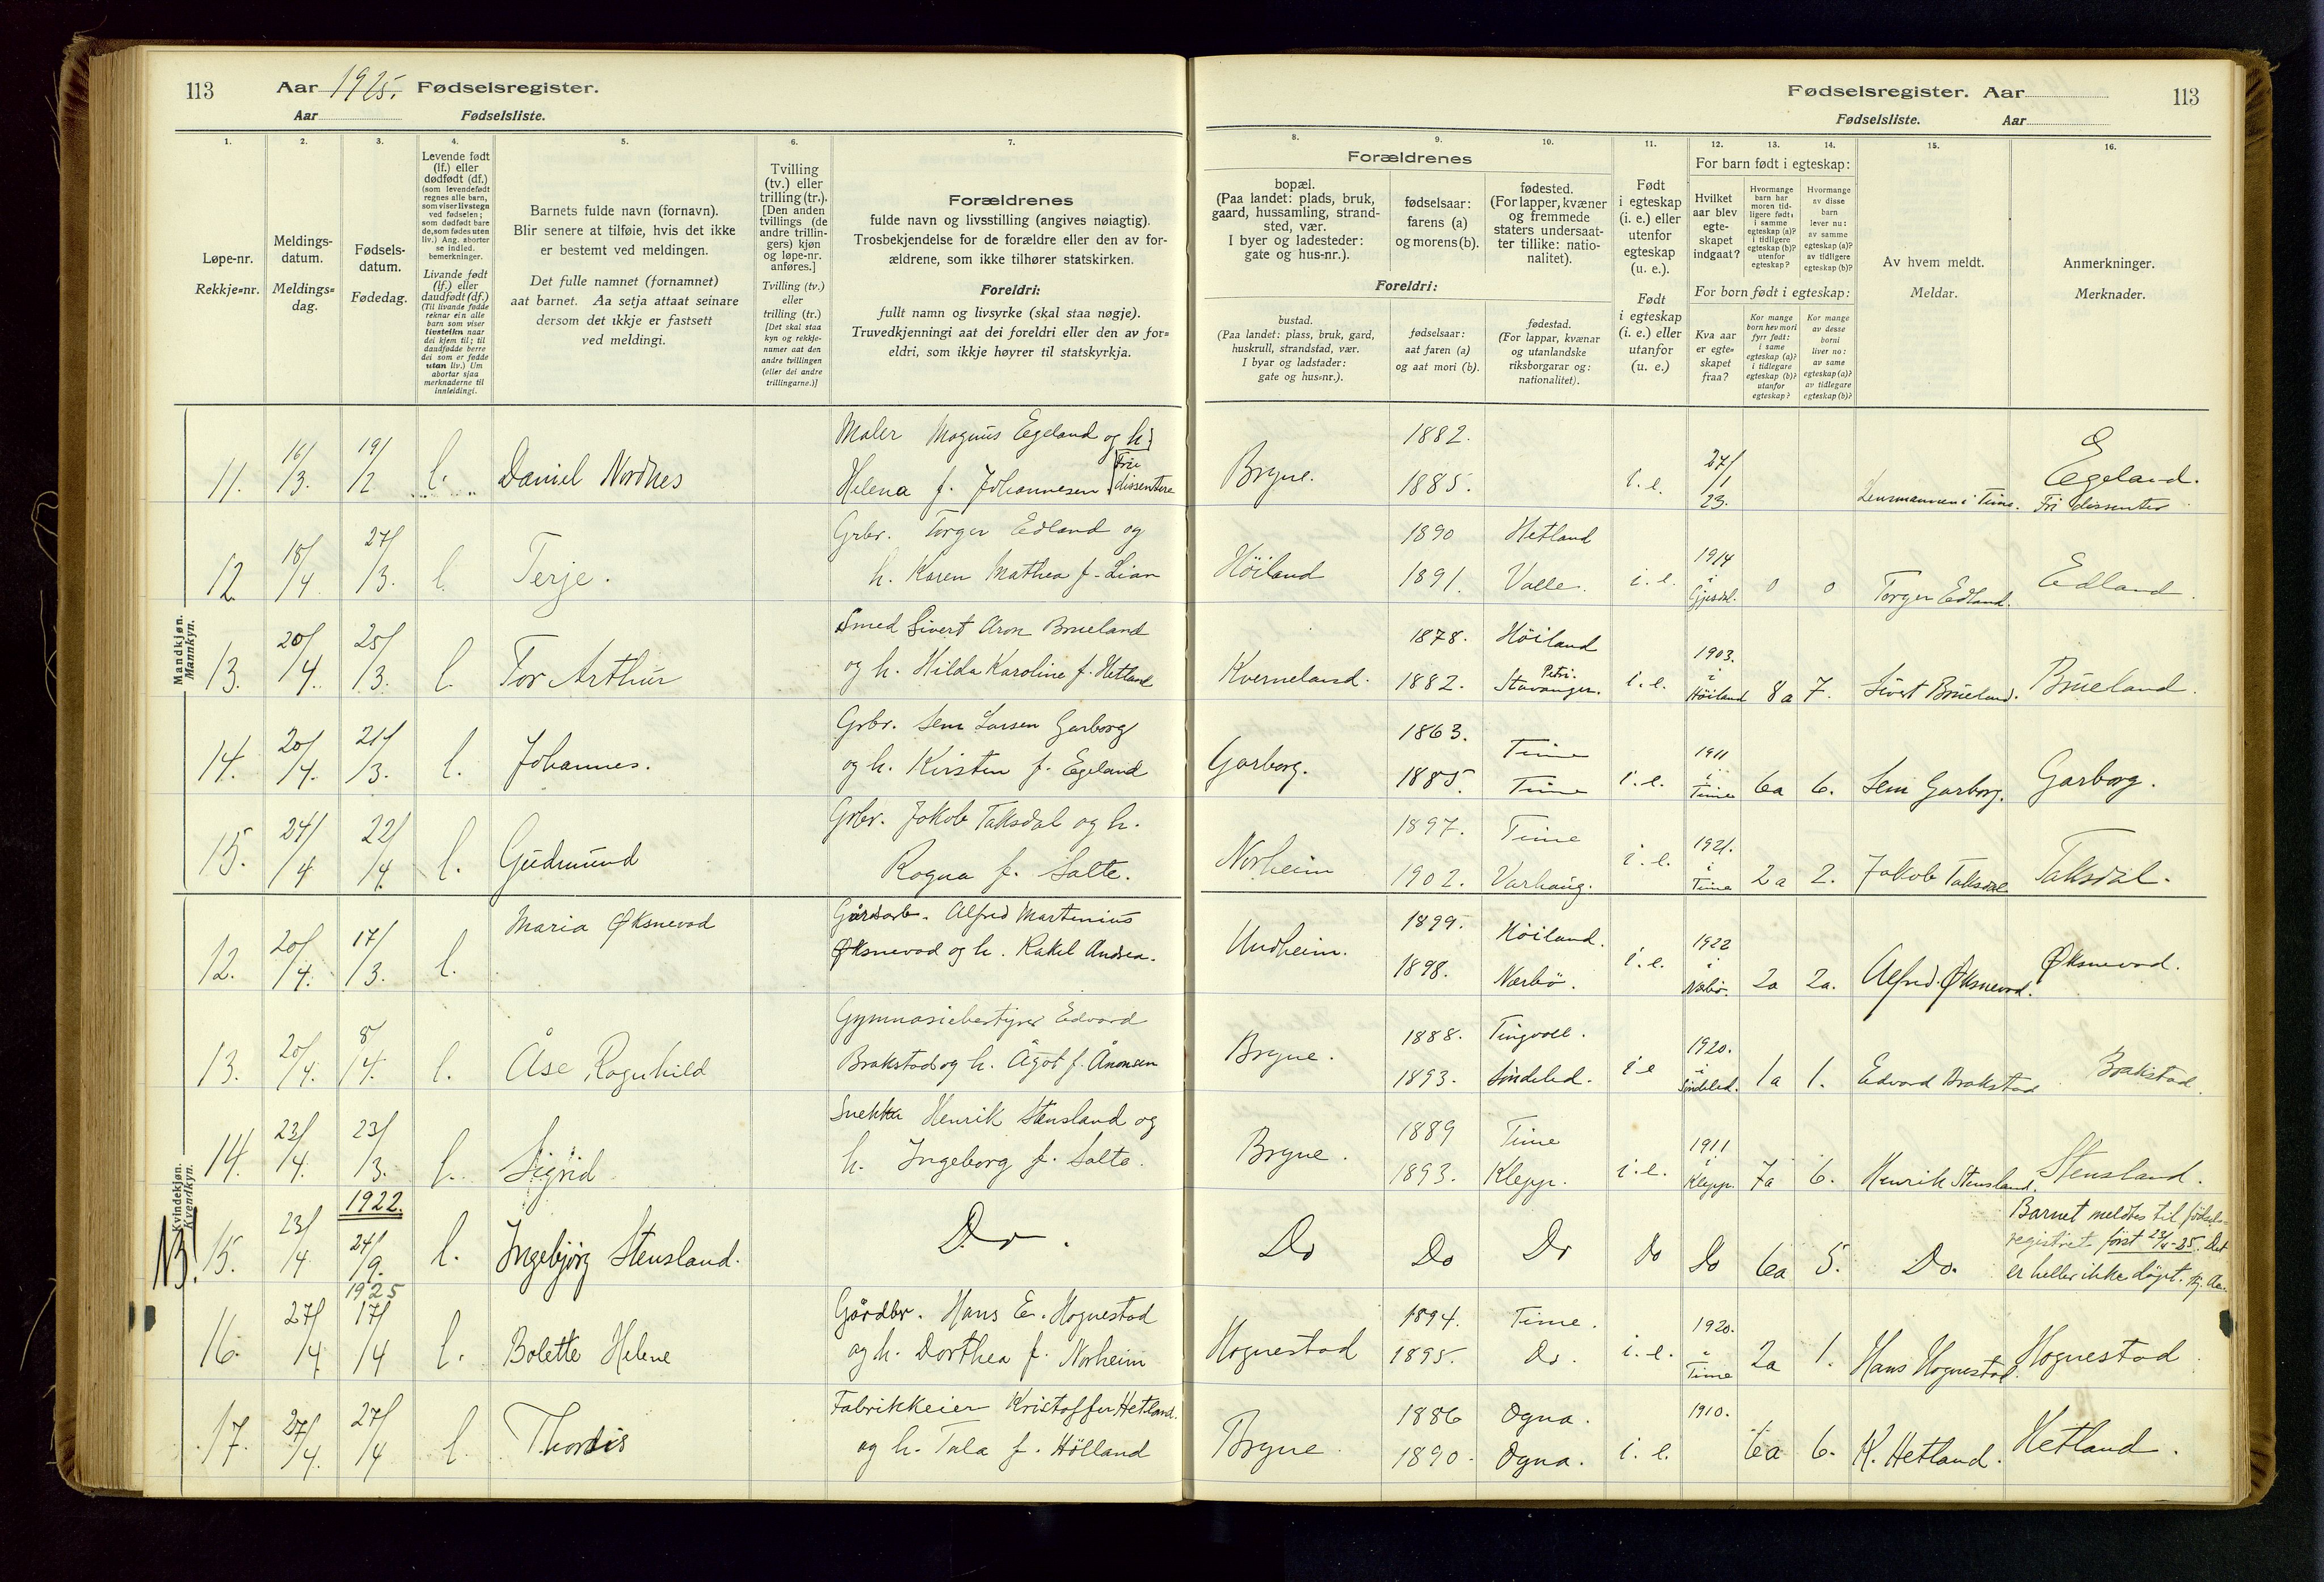 113 Aar 1925. Fødselsregister.
Aar Fødselsliste.
Fødselsregister. Aar 113
Fødselsliste. Aar
1. 2. 3. 4. 5. 6. 7. 8. 9. 10. 11. 12. 13. 14. 15. 16.
Løpe-nr.
Rekkje=nr.
Meldings-
datum.
Meldings=
dag.
Fødsels-
datum.
Fødedag.
Levende født
(lf.) eller
dødfødt (df.)
(som levendefødt
regnes alle barn,
som viser livstegn
ved fødselen;
som dødfødt bare
de, som fødes uten
liv.) Ang. aborter
se indled.
bemerkninger.
Livande født
(lf.) eller
daudfødt (df.)
(Til livande fødde
reknar ein alle
barn som viser
livsteikn naar
dei kjem til; til
daudfødde berre
dei som er fødde
utan liv.) Um
abortar sjaa
merknaderne til
innleidingi.
Barnets fulde navn (fornavn).
Blir senere at tilføie, hvis det ikke
er bestemt ved meldingen.
Det fulle namnet (fornamnet)
aat barnet. Aa setja attaat seinare
dersom det ikkje er fastsett
ved meldingi.
Tvilling
(tv.) eller
trilling (tr.).
[Den anden
tvillings (de
andre trillin-
gers) kjøn
og løpe-nr.
anføres.]
Tvilling (tv.)
eller
trilling (tr.)
[Det skal staa
kyn og rekkje-
numer aat den
andre tvillingen
(eller dei andre
trillingarne.)]
Forældrenes
fulde navn og livsstilling (angives nøiagtig).
Trosbekjendelse for de forældre eller den av for-
ældrene, som ikke tilhører statskirken.
Foreldri:
fullt namn og livsyrke (skal staa nøgje).
Truvedkjenningi aat dei foreldri eller den av for=
eldri, som ikkje høyrer til statskyrkja.
Forældrenes
bopæl.
(Paa landet: plads, bruk,
gaard, hussamling, strand-
sted, vær.
I byer og ladesteder:
gate og hus-nr.).
fødselsaar:
farens (a)
og morens (b).
fødested.
(For lapper, kvæner
og fremmede
staters undersaat-
ter tillike: natio-
nalitet).
Foreldri:
bustad.
(Paa landet: plass, bruk, gard,
huskrull, strandstad, vær.
I byar og ladstader:
gate og hus=nr.).
fødselsaar:
aat faren (a)
og aat mori (b).
fødestad.
(For lappar, kvænar
og utanlandske
riksborgarar og:
nationalitet).
Født
i egteskap
(i. e.) eller
utenfor
egteskap
(u. e.).
Født
i egteskap
(i. e.) eller
utanfor
(u. e.)
For barn født i egteskap:
Hvilket
aar blev
egte-
skapet
indgaat?
Hvormange
barn har
moren tid-
ligere født:
i samme
egteskap (a)?
i tidligere
egteskap (b)?
utenfor
egteskap?
Hvormange
av disse
barn
lever nu:
av samme
egteskap (a)?
av tidligere
egteskap (b)?
For born født i egteskap:
Kva aar
er egte=
skapet
fraa?
Kor mange
born hev mori
fyrr født:
i same
egteskap (a)?
i tidlegare
egteskap (b)?
utanfor
egteskap?
Kor mange
av desse
borni
liver no:
av same
egteskap (a)?
av tidlegare
egteskap (b)?
Av hvem meldt.
Meldar.
Anmerkninger.
Merknader.
Mandkjøn.
Mannkyn.
Maler Magnus Egeland og h. 1882.
11. 16/3. 19/2 l. Daniel Nordnes Helena f. Johannesen Frie dissentere Bryne. 1885. i.e. 27/1 23. Lensmannen i Time. Egeland. Fri dissenter
Grbr. Torger Edland og 1890 Hetland
12 18/4 27/3. l. Terje. h. Karen Mathea f. Lian Höiland 1891. Valle. i.e. 1914 i Gjesdal. 0 0 Torger Edland. Edland.
Smed Sivert Aron Brueland 1878. Höiland
13. 20/4. 25/3. l. Tor Arthur og h. Hilda Karoline f. Hetland Kverneland. 1882. Petri. Stavanger. i.e. 1903. i Höiland 8a 7. Sivert Brueland. Brueland.
Grbr. Sem Larsen Garborg 1863. Time
14. 20/4. 21/3. l. Johannes. og h. Kirsten f. Egeland Garborg. 1885. Time i.e. 1911 i Time 6a 6. Sem Garborg. Garborg.
Grbr. Jakob Taksdal og h. 1897. Time
15. 24/4 22/4. l. Gudmund Ragna f. Salte. Norheim 1902. Varhaug. i.e. 1921. i Time 2a 2. Jakob Taksdal Taksdal.
Kvindekjøn.
Kvendkyn.
Maria Øksnevad Gårdarb. Alfred Martinius 1899. Höiland.
12. 20/4. 17/3. l. Øksnevad og h. Rakel Andrea. Undheim. 1898. Nærbö. i.e. 1922 i Nærbö. 2a 2a. Alfred Øksnevad. Øksnevad.
Gymnasiebestyrer Edvard 1888. Tingvoll.
13. 20/4. 8/4. l. Åse Ragnhild Brakstad og h. Ågot f. Ånonsen Bryne. 1893. Söndeled. i e 1920. i Söndeled. 1a 1. Edvard Brakstad Brakstad.
Snekker Henrik Stensland og 1889 Time
14. 23/4. 23/3. l. Sigrid h. Ingeborg f. Salte. Bryne. 1893. Klepp. i.e. 1911 i Klepp. 7a 6. Henrik Stensland. Stensland.
1922.
NB! 15. 23/4. 24/9. l. Ingebjörg Stensland. Do. Do Do Do Do Do 6a 5. Do. Barnet meldtes til fødsels=
registret først 23/4-25. Det
er heller ikke döpt.
1925
Gårdbr. Hans E. Hognestad 1894. Time.
16. 27/4 17/4 l. Bolette Helene og h. Dorthea f. Norheim Hognestad 1895. Do. i.e. 1920. i Time 2a 1. Hans Hognestad. Hognestad
Fabrikkeier Kristoffer Hetland. 1886 Ogna.
17. 27/4. 27/4 l. Thordis og h. Tala f. Hölland Bryne. 1890. Ogna. i.e. 1910. 6a 6. K. Hetland. Hetland.